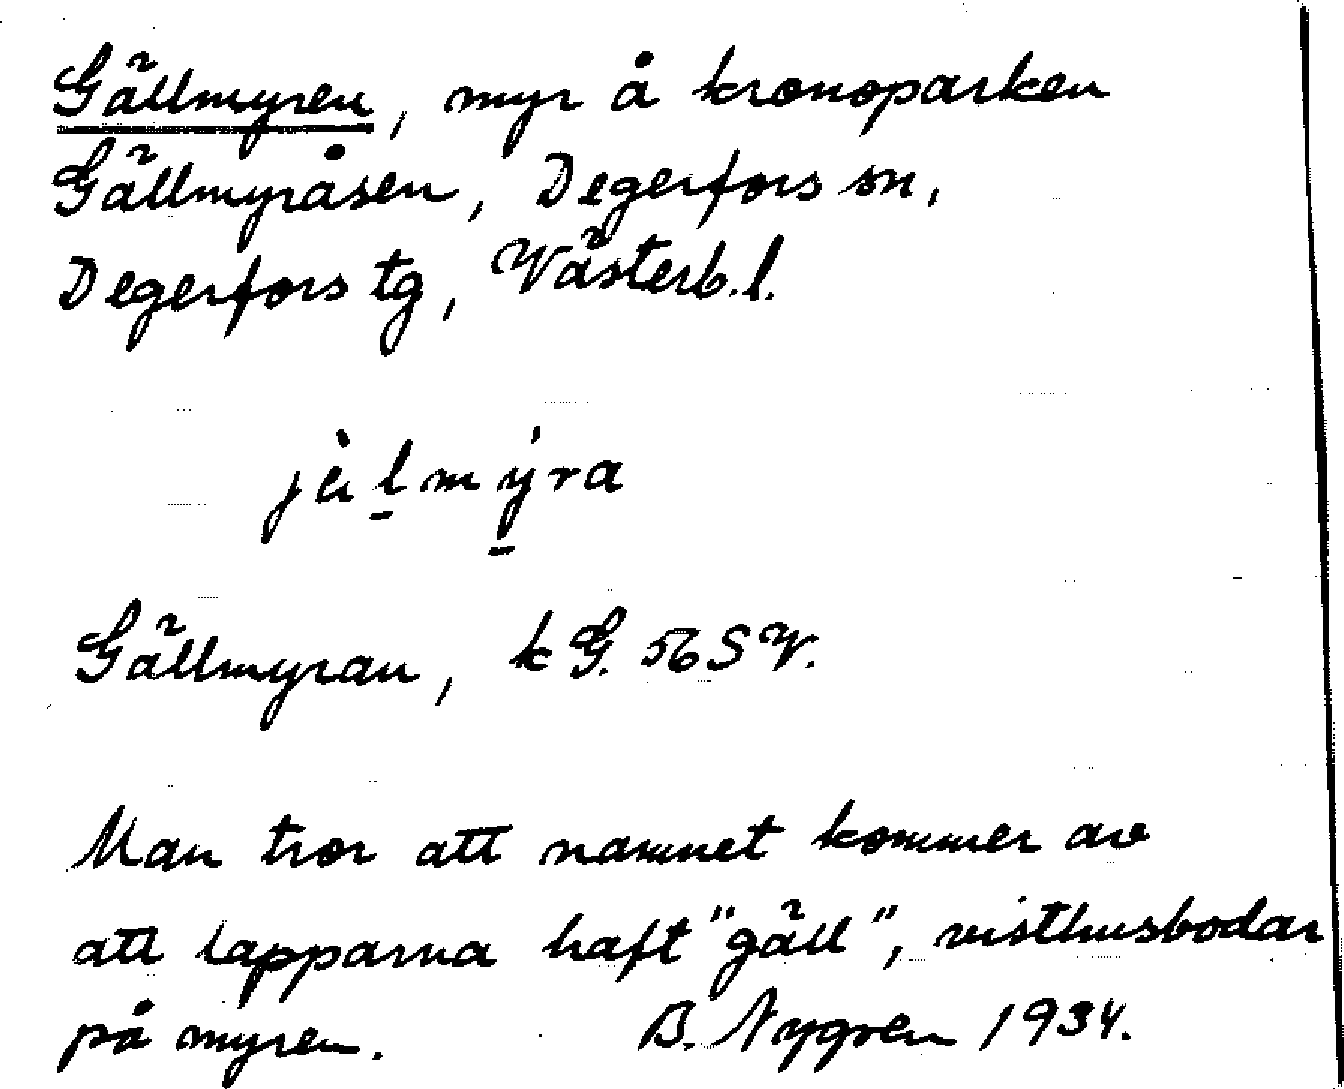 Gällmyren, myr å kronoparken
Gällmyråsen, Degerfors sn,
Degerfors tg, Västerb. l.
jèlmýra
Gällmyran, kG. 56 SV.
Man tror att namnet kommer av
att lapparna haft "gäll", visthusbodar
på myren. B. Nygren 1934.